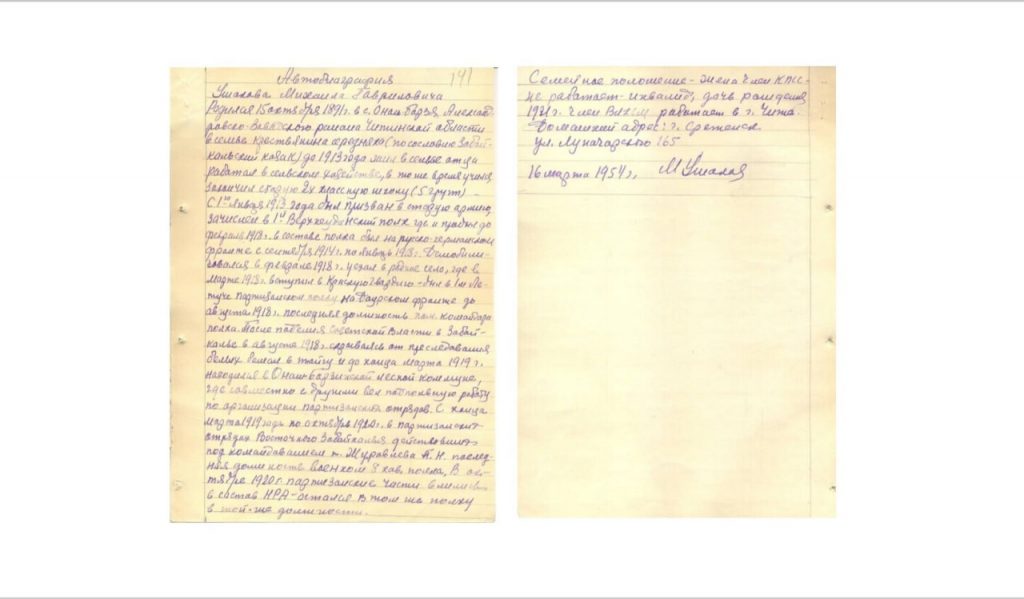 Автобиография
141
Ушакова Михаила Гавриловича
Родился 15 октября 1891 г. в с. Онон-Борзя Александ
ровско-Заводского района Читинской области
в семье крестьянина середняка (по сословию Забай-
кальский казак) до 1913 года жил в семье отца
работал в сельском хозяйстве, в то же время учился
закончил сельскую 2х классную школу (5 групп)
С 1го января 1913 года был призван в старую армию,
зачислен в 1й Верхнеудинский полк где и пробыл до
февраля 1918 г. в составе полка был на русско-германском
фронте с сентября 1914 г. по январь г. Демобили-
зовался в феврале 1918 г. уехал в родное село, где в
марте вступил в Красную гвардию - был в 1м
партизанском полку на Даурском фронте до
августа 1918 г. последняя должность пом. командира
полка. После падения Советской власти в Забай-
калье в августе 1918 г. скрывался от преследования
белых бежал в тайгу и до конца марта 1919 г.
находился в лесной коммуне,
где совместно с другими вел подпольную работу
по организации партизанских отрядов. С конца
марта 1919 года по октябрь 1920 г. в партизанских
отрядах Восточного Забайкалья действовавших
под командованием т. Журавлева П. Н. послед-
няя должность военком 8 кав. полка, В ок-
тябре 1920 г. партизанские части влились
в состав НРА - остался в том же полку
в той-же должности.
Семейное положение - жена член КПСС
не работает - инвалид, дочь рождения
1921 г. член ВЛКСМ работает в г. Чита.
Домашний адрес: г. Сретенск
ул. Луначарского 165
16 марта 1954 г. М Ушаков